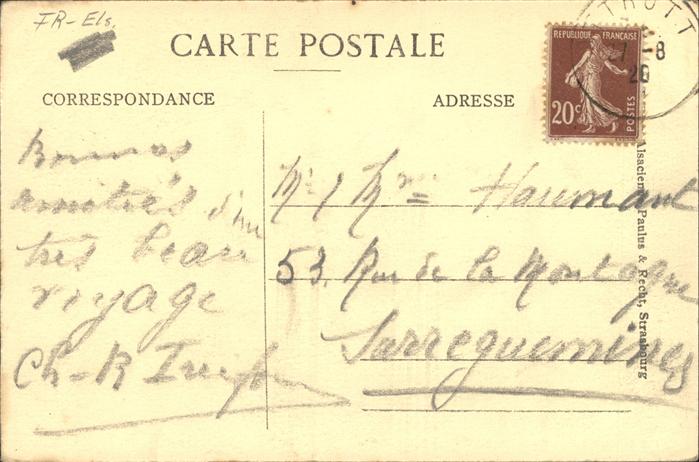 FR-Els.
CARTE POSTALE
CORRESPONDANCE
ADRESSE
REPUBLIQUE FRANÇAISE
20c
POSTES
TROTT
-8
26
Bonnes
amitiés d'un
très beau
voyage
Ch-R
Mr / Mme
53. Rue de la Montagne
Sarreguemines
Paulus & Recht, Strasbourg